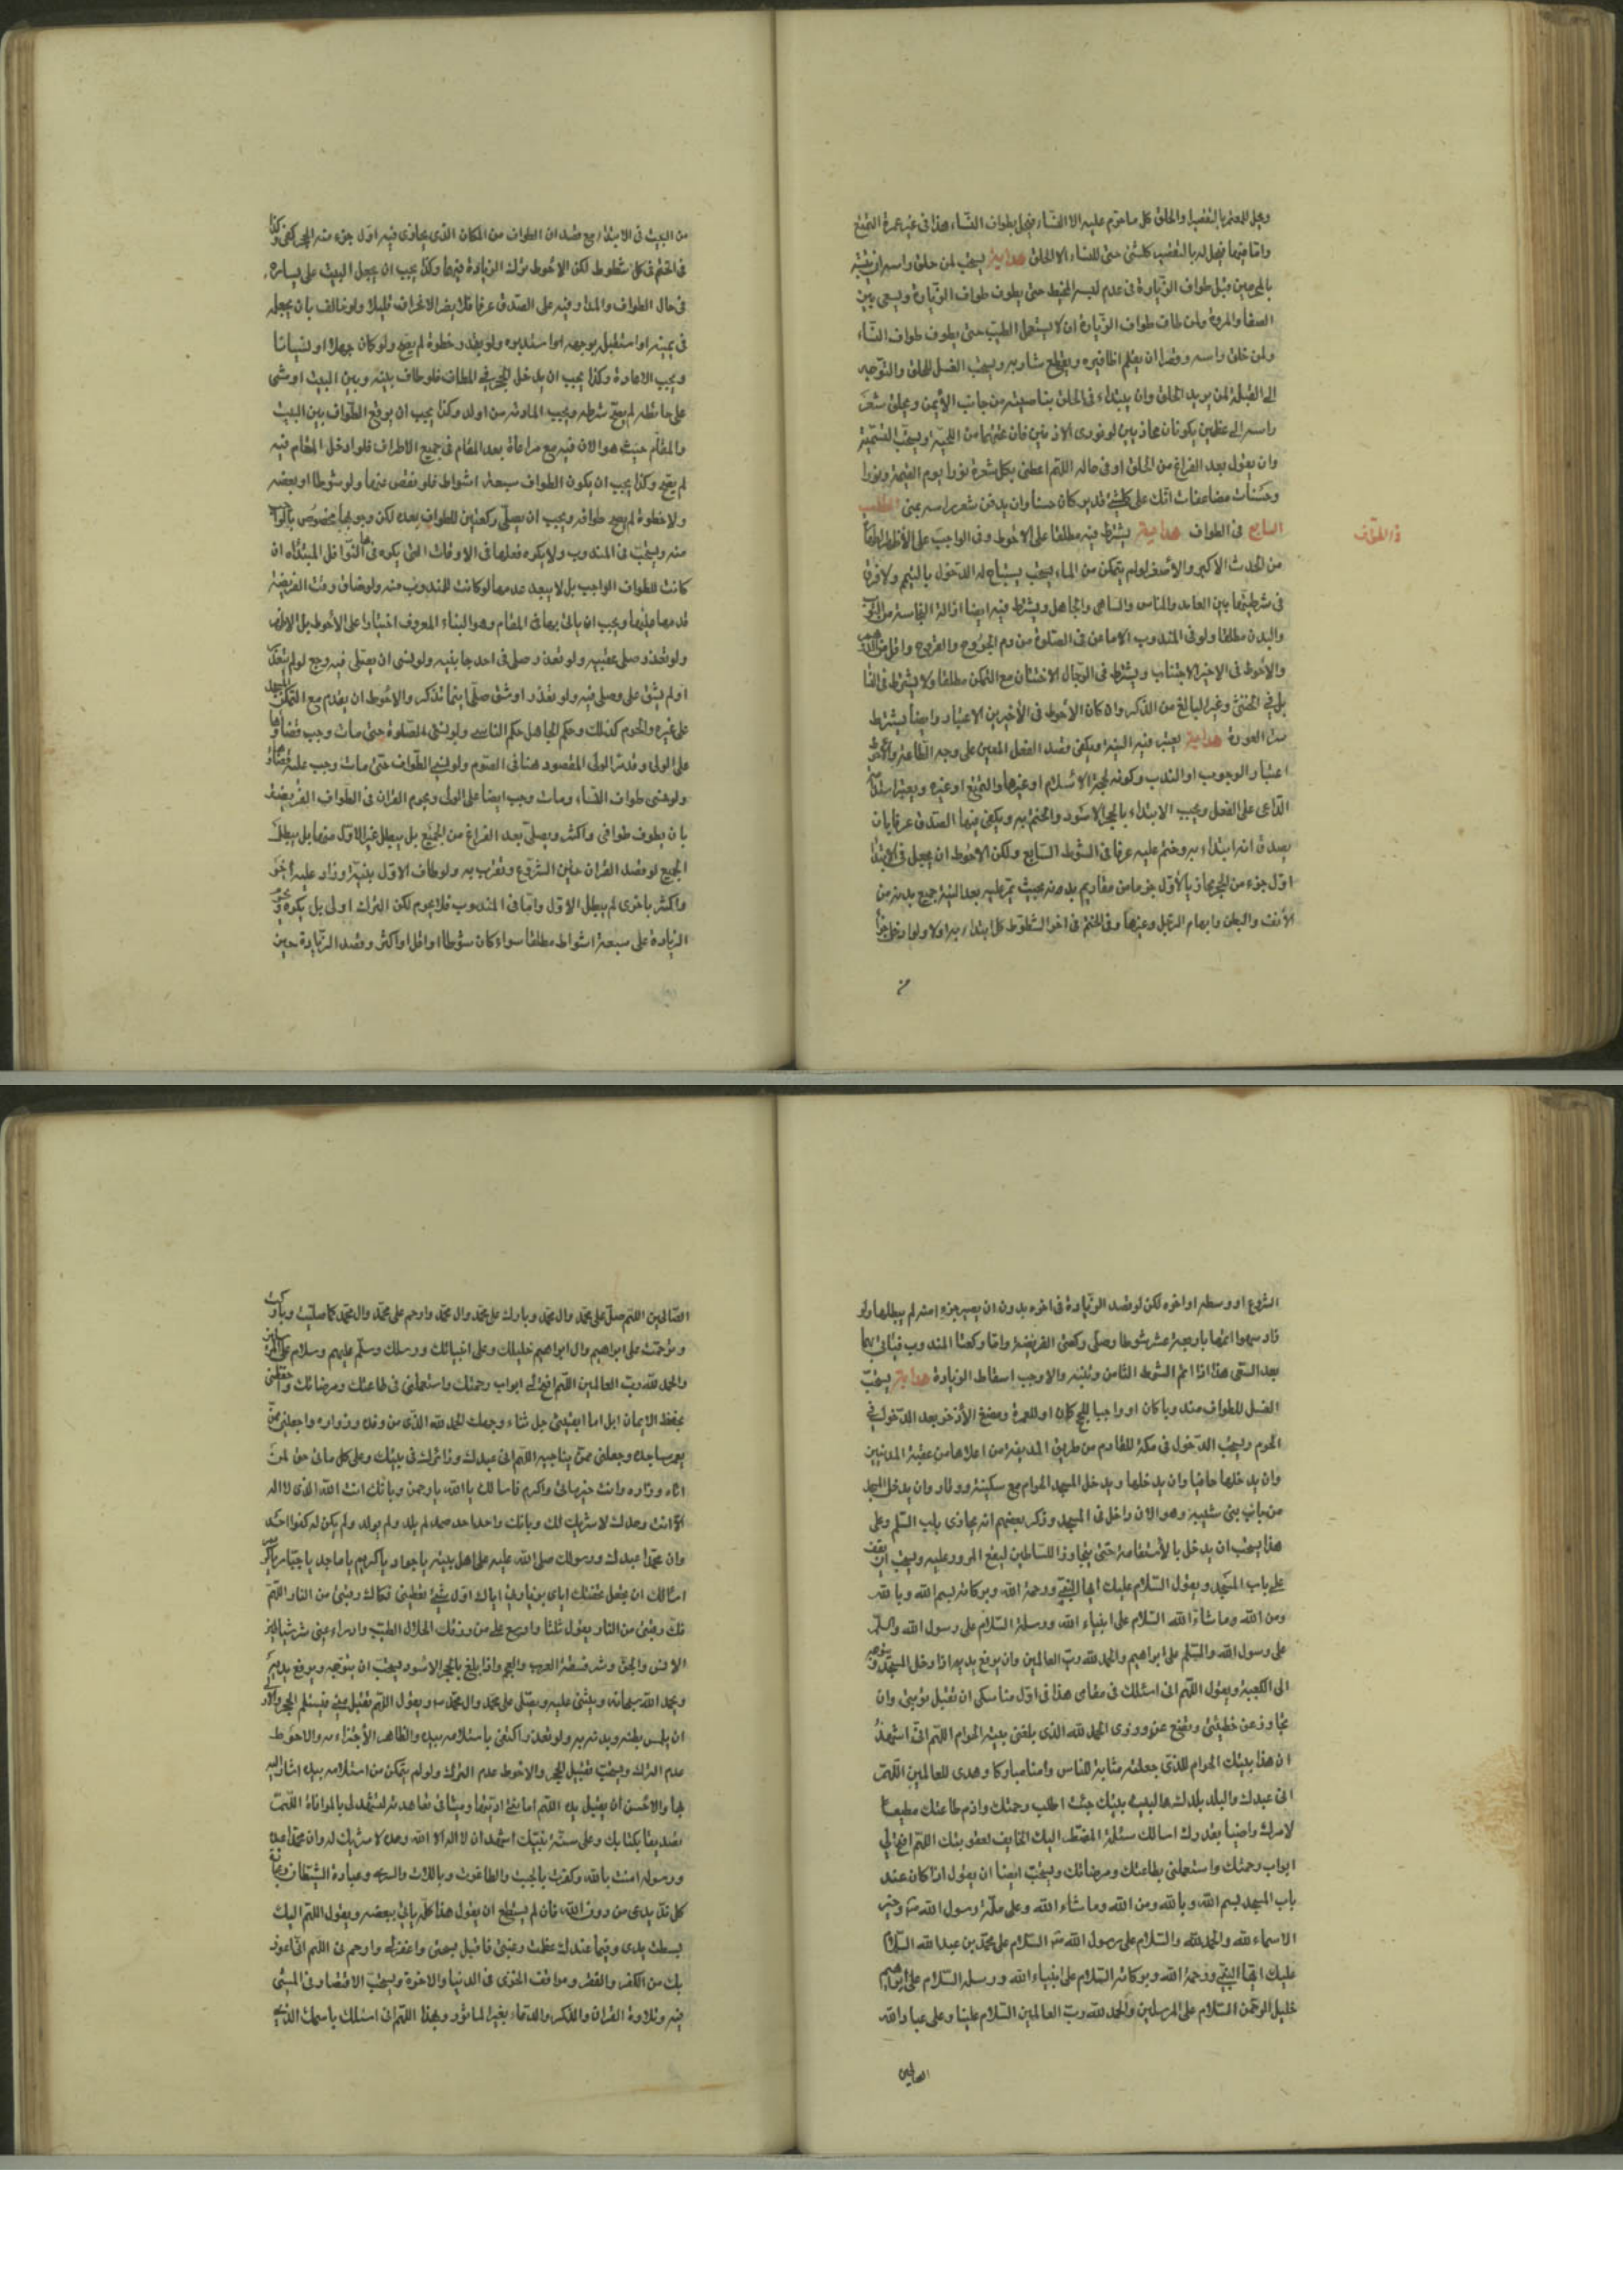 ويحل للمعتمر بالتقصير والحلق كل ما حرم عليه الا النساء فيحل بطواف النساء هذا في غير عمرة التمتع
واما فيها فيحل له بالتقصير كلشئ حتى النساء الا الحلق هداية يستحب لمن حلق راسه ان يتشبه
بالمحرمين قبل طواف الزيارة في عدم لبس المخيط حتى يطوف طواف الزيارة ويسعى بين
الصفا والمروة ولمن طاف طواف الزيارة ان لا يستعمل الطيب حتى يطوف طواف النساء
ولمن حلق راسه وقصر ان يقلم اظافيره ويقطع شاربه ويستحب الغسل للحلق والتوجه
الى القبلة لمن يريد الحلق وان يبتداء في الحلق بناصيته من جانب الأيمن ويحلق شعر
راسه الى عظمين يكونان محاذيين لوتدى الاذنين فان عنهما من اللحية ويستحب التسمية
وان يقول بعد الفراغ من الحلق او في حاله اللهم اعطني بكل شعرة نورا يوم القيمة ونورا
وحسنات مضاعفات انك على كلشئ قدير وكان حسنا وان يدفن شعر راسه بمنى المطلب
السابع في الطواف هداية يشترط فيه مطلقا على الاحوط وفي الواجب على الأظهر الطهارة
في الطواف
من الحدث الأكبر والأصغر ولو لم يتمكن من الماء يجب يستباح له الدخول بالتيمم ولا فرق
في شرطيتها بين العامد والناس والساهي والجاهل ويشترط فيه ايضا ازالة النجاسة من الثوب
والبدن مطلقا ولو في المندوب الا ما عن في الصلوة من دم الجروح والقروح واقل من الدرهم
والأحوط في الاخير الاجتناب ويشترط في الرجال الاختتان مع التمكن مطلقا ولا يشترط في النساء
بل في الخنثى وغير البالغ من الذكر وان كان الأحوط في الأخيرين الاعتبار وايضا يشترط
ستر العورة هداية يعتبر فيه النية ويكفي قصد الفعل المعين على وجه الطاعة والأحوط
اعتبار الوجوب او الندب وكونه لحجة الاسلام او غيرها والتمتع او غيره ويعتبر
الداعى على الفعل ويجب الابتداء بالحجر الاسود والختم به ويكفي فيهما الصدق عرفا بان
يصدق انه ابتداء به وختم عليه عرفا في الشوط السابع ولكن الاحوط ان يجعل في الابتداء
اول جزء من الحجر محاذيا لأول جزء من مقاديم بدنه بحيث يمر عليه بعد النية جميع بدنه من
الأنف والبطن وابهام الرجل وغيرها وفي الختم في اخر الشوط كل ابتداء به اولا ولو
من
من البيت في الابتداء مع قصد ان الطواف من المكان الذى يحاذى فيه اول جزء منه الحجر كفى وكذا
في الختم في كل شوط لكن الاحوط ترك الزيادة فيهما وكذا يجب ان يجعل البيت على يساره
في حال الطواف والمدار فيه على الصدق عرفا فلا يضر الانحراف قليلا ولو خالف بان يجعله
في يمينه او استقبله بوجهه او استدبره ولو بقدر خطوة لم يصح ولو كان جهلا او نسيانا
ويجب الاعادة وكذا يجب ان يدخل الحجر في المطاف فلو طاف بينه وبين البيت او مشى
على حائطه لم يصح شوطه ويجب المعاودته من اوله وكذا يجب ان يوقع الطواف بين البيت
والمقام حيث هو الان فيه مع مراعاة بعد المقام في جميع الاطراف فلو ادخل المقام فيه
لم يصح وكذا يجب ان يكون الطواف سبعة اشواط فلو نقص منها ولو شوطا او بعضه
ولا خطوة لم يصح طوافه ويجب ان يصلى ركعتين للطواف بعده لكن وجوبها مخصوص بالواجب
منه ويستحب في المندوب ولا يكره فعلها في الاوقات التى يكره فيها النوافل المبتداه ان
كانت للطواف الواجب بل لا يبعد عدمها لو كانت للمندوب منه ولو ضاق وقت الفريضة
قدمها عليها ويجب ان ياتى بها في المقام وهو البناء المعروف اختيارا على الأحوط بل الاظهر
ولو تعذر صلى عقيبه ولو تعذر صلى في احد جانبيه ولو نسى ان يصلى فيه رجع لو لم يتعذر
او لم يشق على وصلى فيه ولو تعذر او شق صلى اينما تذكر والاحوط ان يقدم مع التمكن المسجد
على غيره والحرم كذلك وحكم الجاهل حكم الناسى ولو نسى الصلوة حتى مات وجب قضاؤها
على الولى وقد مر الولى المقصود هنا في الصوم ولو نسى الطواف حتى مات وجب عليه قضاؤه
ولو نسى طواف النساء ومات وجب ايضا على الولى ويحرم القران في الطواف الفريضة
بان يطوف طوافي واكثر ويصلى بعد الفراغ من الجميع بل يبطل غير الاول منها بل يبطل
الجميع لو قصد القران حين الشروع وتقرب به ولو طاف الاول بنية وزاد عليه اخر
واكثر باخرى لم يبطل الاول واما في المندوب فلا يحرم لكن الترك اولى بل يكره ويحرم
الزيادة على سبعة اشواط مطلقا سواء كان شوطا او اقل او اكثر وقصد الزيادة حين
الشروع او وسطه او اخره لكن لو قصد الزيادة في اخره بدون ان يصير جزء منه لم يبطلها ولو
زاد سهوا اتمها باربعة عشر شوطا وصلى ركعتى الفريضة واما ركعتا المندوب فياتى بها
بعد السعى هذا اذا اتم الشوط الثامن ونيته والا وجب اسقاط الزيادة هداية يستحب
الغسل للطواف مندوبا كان او واجبا للحج كان او للعمرة ومضغ الأذخر بعد الدخول في
الحرم ويستحب الدخول في مكة للقادم من طريق المدينة من اعلاها من عقبة المدنيين
وان يدخلها حافيا وان يدخلها ويدخل المسجد الحرام مع سكينة ووقار وان يدخل المسجد
من باب بنى شيبة وهو الان داخل في المسجد وذكر بعضهم انه يحاذى باب السلام وعلى
هذا يستحب ان يدخل بالاستقامة حتى يتجاوز الاساطين ليقع المرور عليه ويستحب ان يقف
على باب المسجد ويقول السلام عليك ايها النبى ورحمة الله وبركاته بسم الله وبالله
ومن الله وما شاء الله السلام على انبياء الله ورسله السلام على رسول الله والسلام
على رسول الله والسلم على ابراهيم والحمد لله رب العالمين وان يرفع يديه اذا دخل المسجد ويتوجه
الى الكعبة ويقول اللهم انى اسئلك في مقامى هذا في اول مناسكى ان تقبل توبتى وان
تجاوز عن خطيئتى وتضع عنى وزرى الحمد لله الذى بلغنى بيته الحرام اللهم انى اشهد
ان هذا بيتك الحرام للذى جعلته مثابة للناس وامنا مباركا وهدى للعالمين اللهم
انى عبدك والبلد بلدك والبيت بيتك جئت اطلب رحمتك واؤم طاعتك مطيعا
لامرك راضيا بقدرك اسالك مسئلة المضطر اليك الخايف لعقوبتك اللهم افتح لى
ابواب رحمتك واستعملنى بطاعتك ومرضاتك ويستحب ايضا ان يقول اذا كان عند
باب المسجد بسم الله وبالله ومن الله وما شاء الله وعلى ملة رسول الله ص وخير
الاسماء لله والحمد لله والسلام على رسول الله ص السلام على محمد بن عبد الله السلام
عليك ايها النبى ورحمة الله وبركاته السلام على انبياء الله ورسله السلام على ابراهيم
خليل الرحمن السلام على المرسلين والحمد لله رب العالمين السلام علينا وعلى عباد الله
الصالحين
الصالحين اللهم صل على محمد وال محمد وبارك على محمد وال محمد وارحم على محمد وال محمد كما صليت وباركت
وترحمت على ابراهيم وال ابراهيم خليلك وعلى انبيائك ورسلك وسلم عليهم وسلام على المرسلين
والحمد لله رب العالمين اللهم افتح لى ابواب رحمتك واستعملنى في طاعتك ومرضاتك واحفظنى
بحفظ الايمان ابدا ما ابقيتنى جل ثناء وجهك الحمد لله الذى من وفده وزواره واجعلنى ممن
يعمر مساجده وجعلنى ممن يناجيه اللهم انى عبدك وزائرك في بيتك وعلى كل ماتى حق لمن
اتاه وزاره وانت خير ماتى واكرم فاسالك يا الله يا رحمن وبانك انت الله الذى لا اله
الا انت وحدك لا شريك لك وبانك واحد احد صمد لم يلد ولم يولد ولم يكن له كفوا احد
وان محمدا عبدك ورسولك صلى الله عليه على اهل بيته يا جواد يا كريم يا ماجد يا جبار يا كريم
اسالك ان تجعل تحفتك اياى بزيارتى اياك اول شئ تعطينى فكاك رقبتى من النار اللهم
فك رقبتى من النار يقول ثلثا واوسع على من رزقك الحلال الطيب وادراء عنى شر شياطين
الانس والجن وشر فسقة العرب والعجم واذا بلغ بالحجر الاسود يستحب ان يتوجه ويرفع يديه
ويحمد الله سبحانه ويثنى عليه ويصلى على محمد وال محمد ص ويقول اللهم تقبل منى فيستلم الحجر والاولى
ان يلمس بطنه وبدنه به ولو تعذر اكتفى باستلامه بيده والظاهر الأجتزاء به والاحوط
عدم الترك ويستحب تقبيل الحجر والاحوط عدم الترك ولو لم يتمكن من استلامه بيده اشار اليه
بها والاحسن ان يقبل يده اللهم امانتى اديتها وميثاقى تعاهدته لتشهد لى بالموافاة اللهم
تصديقا بكتابك وعلى سنة نبيك اشهد ان لا اله الا الله وحده لا شريك له وان محمدا عبده
ورسوله امنت بالله وكفرت بالجبت والطاغوت وباللات والعزى وعبادة الشيطان وعبادة
كل ند يدعى من دون الله فان لم يستطع ان يقول هذا كله ياتى ببعضه ويقول اللهم اليك
بسطت يدى وفيما عندك عظمت رغبتى فاقبل سبحتى واغفر لى وارحم نى اللهم انى اعوذ
بك من الكفر والفقر ومواقف الخزى في الدنيا والاخرة ويستحب الاقتصاد في المشى
فيه وتلاوة القران والذكر والدعاء بغير الماثور وبهذا اللهم انى اسئلك باسمك الذى